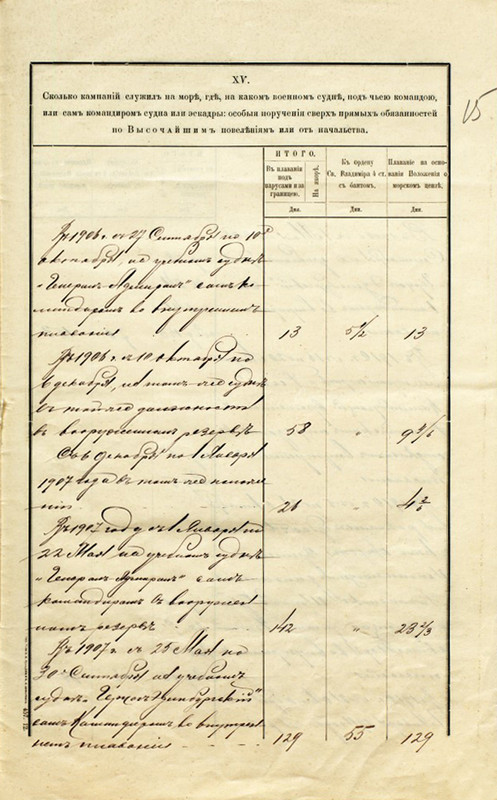 15
XV.
Сколько кампаній служилъ на морѣ, гдѣ, на какомъ военномъ суднѣ, подъ чьею командою,
или самъ командиромъ судна или эскадры: особыя порученія сверхъ прямыхъ обязанностей
по Высочайшимъ повелѣніямъ или отъ начальства.
ИТОГО.
Въ плаваніи подъ парусами и за границею.
На якорѣ.
Къ ордену Св. Владиміра 4 ст. съ бантомъ.
Плаваніе на основаніи Положенія о морскомъ цензѣ.
Дни. Дни. Дни.
Въ 1906 г. съ 27 Сентября по 10
октября, на учебномъ суднѣ
"Генералъ Адмиралъ" самъ ко-
мандиромъ во внутреннемъ
плаваніи 13 5½ 13
Въ 1906 г. съ 10 октября по
6 декабря, на томъ же суднѣ
въ той же должности
въ вооруженномъ резервѣ 58 "
Съ 6 декабря по 1 Января
1907 года въ томъ же
26 "
Въ 1907 году съ 1 Января по
22 Мая на учебномъ суднѣ
"Генералъ Адмиралъ" самъ
командиромъ въ вооружен-
номъ резервѣ 142 " 23 2/3
Въ 1907 г. съ 25 Мая по
30 Сентября на учебномъ
суднѣ "Герцогъ Эдинбургскій"
самъ Командиромъ во внутрен-
немъ плаваніи 129 55 129